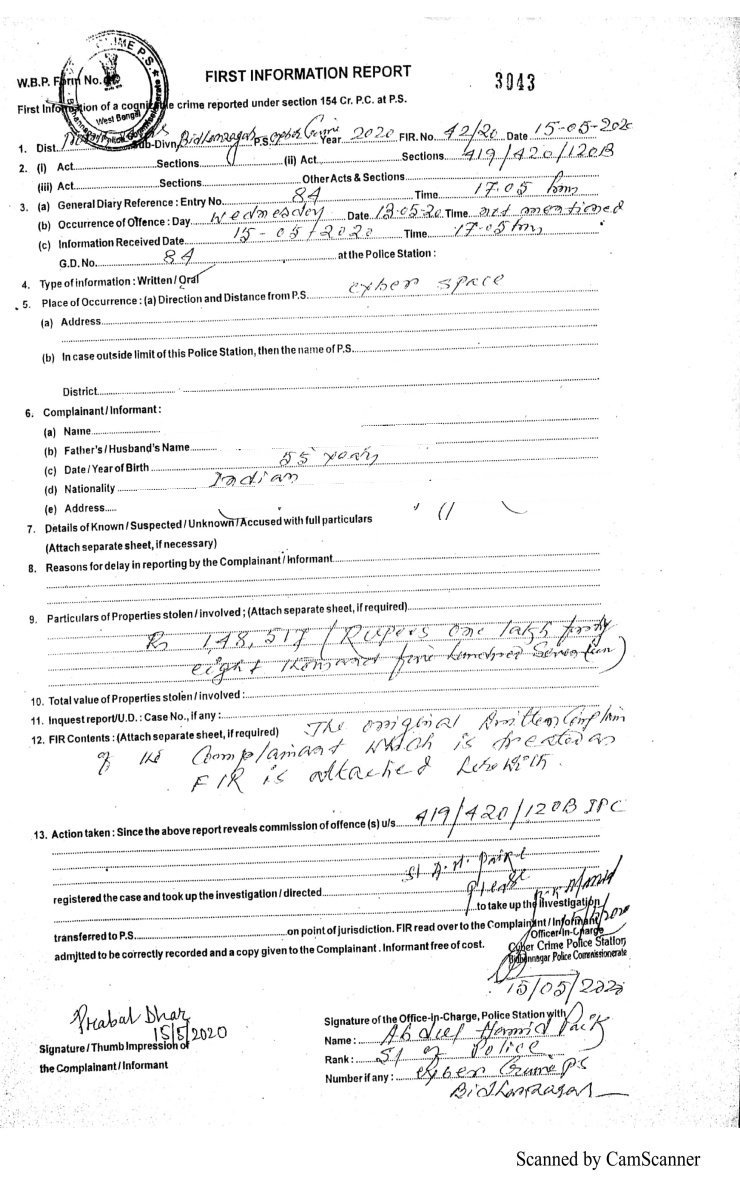 CRIME P.S.
West Bengal
W.B.P. Form No.
FIRST INFORMATION REPORT
3043
First Information of a cognizable crime reported under section 154 Cr. P.C. at P.S.
1. Dist. Sub-Divn. Bidhannagar P.S. Cyber Crime Year 2020 FIR. No. 42/20 Date 15-05-2020
2. (i) Act Sections (ii) Act Sections 419/420/120B
(iii) Act Sections Other Acts & Sections
3. (a) General Diary Reference : Entry No. 84 Time 17.05 hrs
(b) Occurrence of Offence : Day Wednesday Date 13.05-20 Time not mentioned
(c) Information Received Date 15-05/2020 Time 17.05 hrs
G.D. No. 84 at the Police Station :
4. Type of information : Written / Oral
5. Place of Occurrence : (a) Direction and Distance from P.S. cyber space
(a) Address
(b) In case outside limit of this Police Station, then the name of P.S.
District
6. Complainant / Informant :
(a) Name
(b) Father's / Husband's Name
(c) Date / Year of Birth 55 years
(d) Nationality Indian
(e) Address
7. Details of Known / Suspected / Unknown / Accused with full particulars
(Attach separate sheet, if necessary)
8. Reasons for delay in reporting by the Complainant / Informant
9. Particulars of Properties stolen / involved ; (Attach separate sheet, if required)
Rs 1,48,517 (Rupees one lakh forty
eight thousand five hundred seventeen)
10. Total value of Properties stolen / involved :
11. Inquest report/U.D. : Case No., if any :
12. FIR Contents : (Attach separate sheet, if required) The original written
of the Complainant which is treated as
FIR is attached herewith.
13. Action taken : Since the above report reveals commission of offence (s) u/s. 419/420/120B IPC
SI A.H.
registered the case and took up the investigation / directed
to take up the investigation
transferred to P.S. on point of jurisdiction. FIR read over to the Complainant / Informant
admitted to be correctly recorded and a copy given to the Complainant. Informant free of cost.
Officer-In-Charge
Cyber Crime Police Station
Bidhannagar Police Commissionerate
15/05/2020
Prabal Dhar
15/5/2020
Signature / Thumb Impression of
the Complainant / Informant
Signature of the Office-in-Charge, Police Station with
Name : Abdul Hamid
Rank : SI of Police
Number if any : Cyber Crime PS
Bidhannagar
Scanned by CamScanner